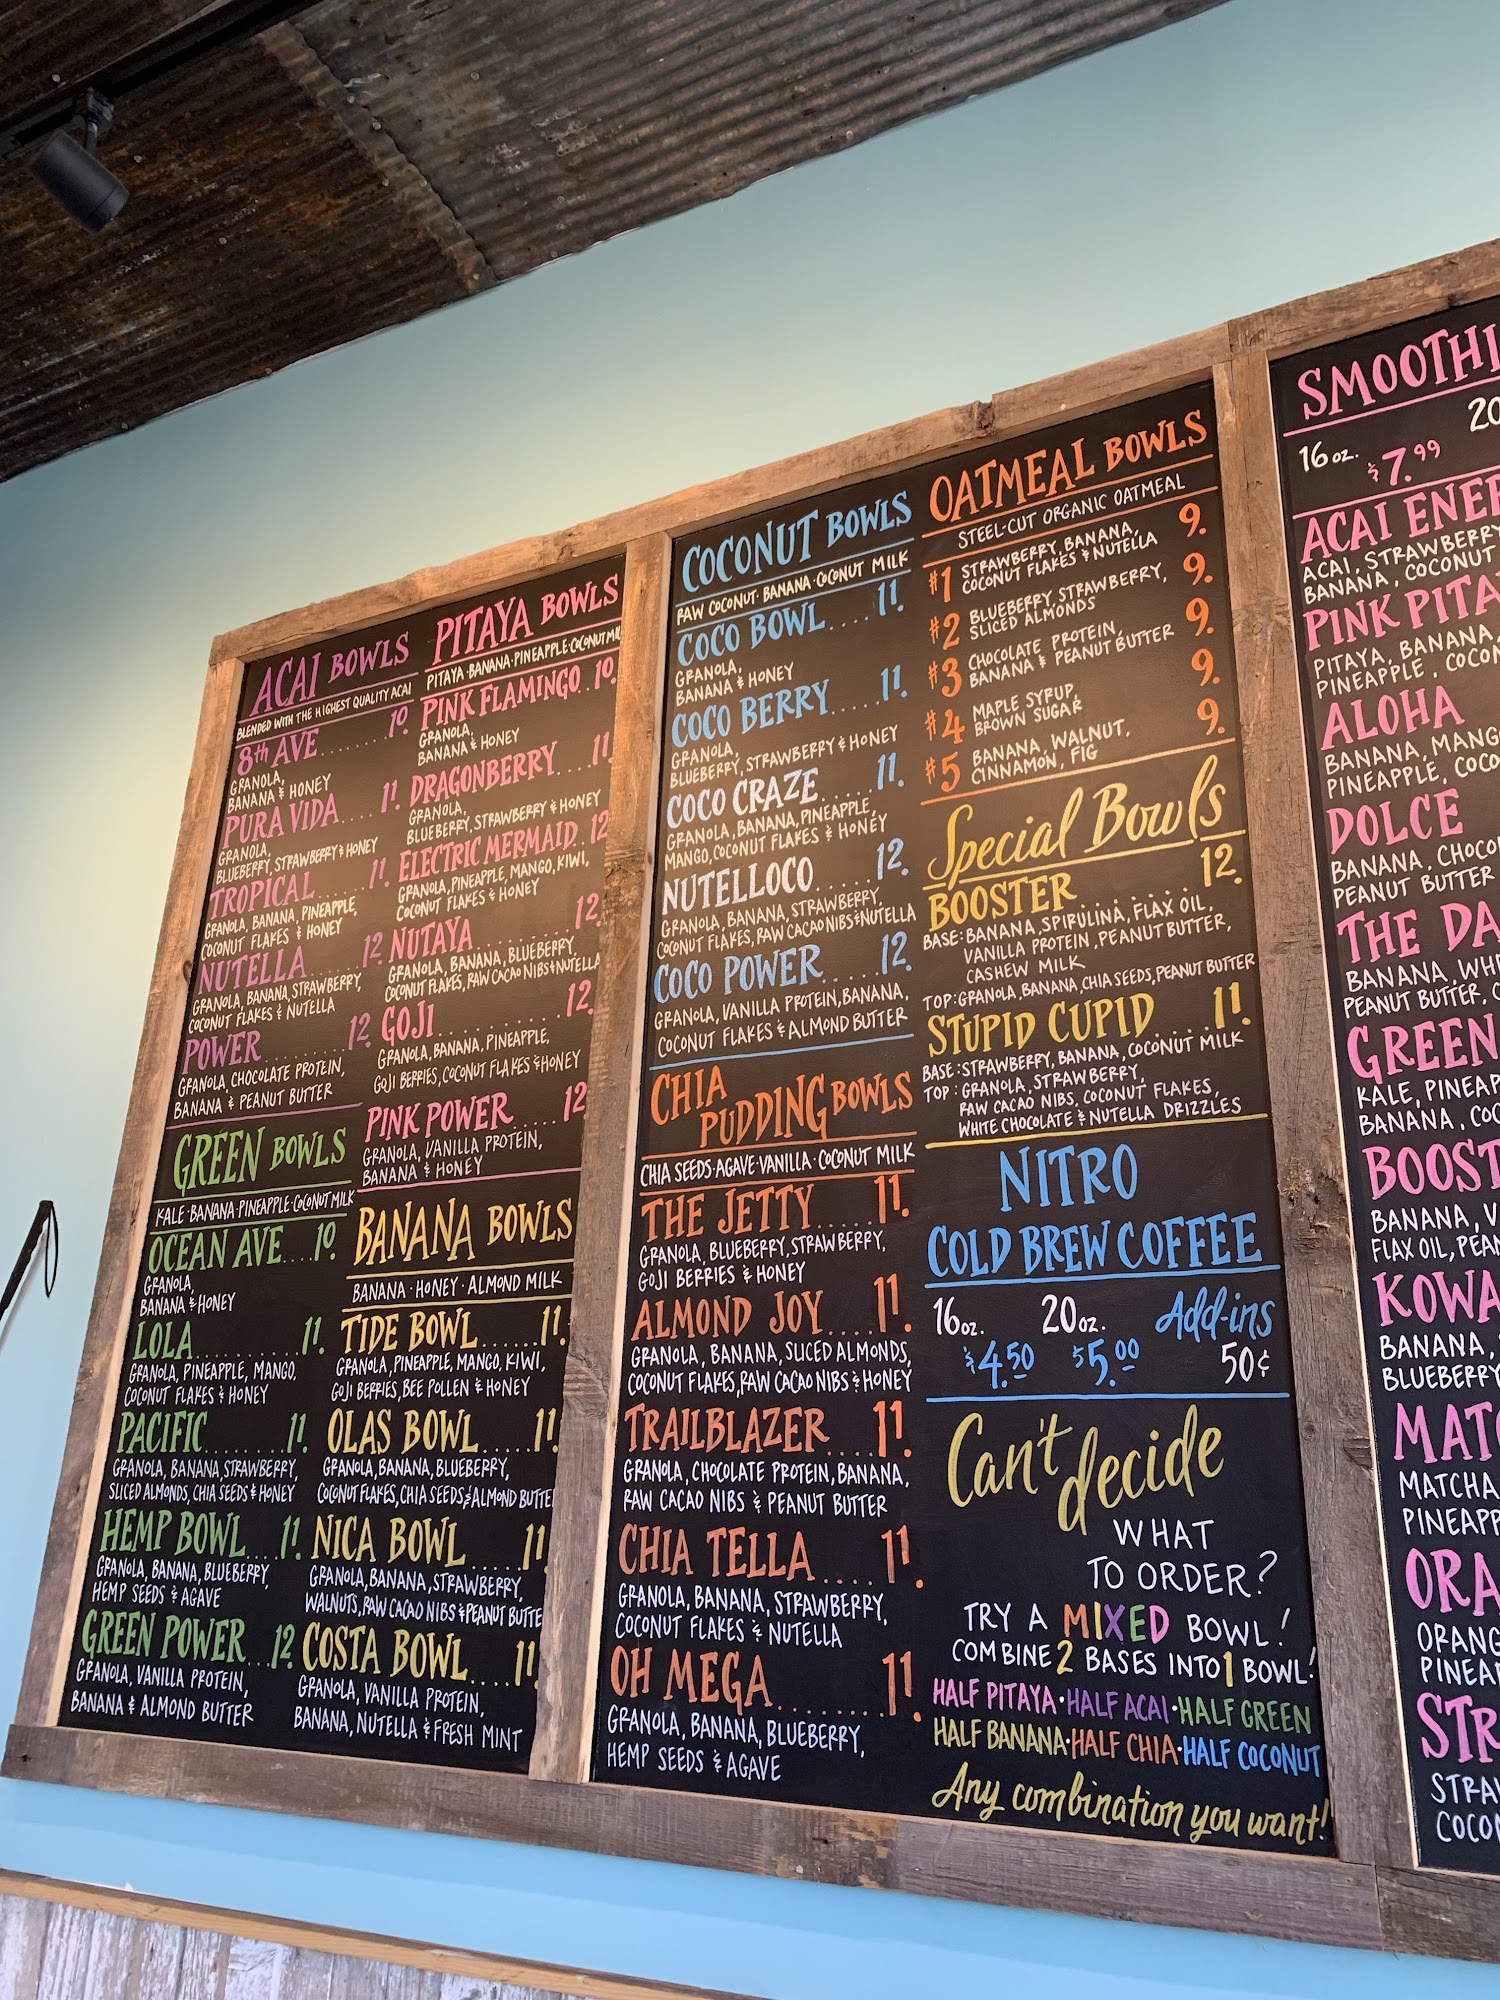 ACAI BOWLS
BLENDED WITH THE HIGHEST QUALITY ACAI
8th AVE........ 10.
GRANOLA,
BANANA & HONEY
PURA VIDA.... 11.
GRANOLA,
BLUEBERRY, STRAWBERRY & HONEY
TROPICAL...... 11.
GRANOLA, BANANA, PINEAPPLE,
COCONUT FLAKES & HONEY
NUTELLA 12.
GRANOLA, BANANA, STRAWBERRY,
COCONUT FLAKES & NUTELLA
POWER......... 12.
GRANOLA, CHOCOLATE PROTEIN,
BANANA & PEANUT BUTTER
GREEN BOWLS
KALE·BANANA·PINEAPPLE·COCONUT MILK
OCEAN AVE... 10.
GRANOLA,
BANANA & HONEY
LOLA........... 11.
GRANOLA, PINEAPPLE, MANGO,
COCONUT FLAKES & HONEY
PACIFIC........ 11.
GRANOLA, BANANA, STRAWBERRY,
SLICED ALMONDS, CHIA SEEDS & HONEY
HEMP BOWL.... 11.
GRANOLA, BANANA, BLUEBERRY,
HEMP SEEDS & AGAVE
GREEN POWER...12.
GRANOLA, VANILLA PROTEIN,
BANANA & ALMOND BUTTER
PITAYA BOWLS
PITAYA·BANANA·PINEAPPLE·COCONUT
PINK FLAMINGO..10.
GRANOLA,
BANANA & HONEY
DRAGONBERRY....11.
GRANOLA,
BLUEBERRY, STRAWBERRY & HONEY
ELECTRIC MERMAID..12
GRANOLA, PINEAPPLE, MANGO, KIWI,
COCONUT FLAKES & HONEY
NUTAYA........... 12.
GRANOLA, BANANA, BLUEBERRY,
COCONUT FLAKES, RAW CACAO NIBS & NUTELLA
GOJI............. 12.
GRANOLA, BANANA, PINEAPPLE,
GOJI BERRIES, COCONUT FLAKES & HONEY
PINK POWER...... 12
GRANOLA, VANILLA PROTEIN,
BANANA & HONEY
BANANA BOWLS
BANANA · HONEY · ALMOND MILK
TIDE BOWL......11.
GRANOLA, PINEAPPLE, MANGO, KIWI,
GOJI BERRIES, BEE POLLEN & HONEY
OLAS BOWL.....11.
GRANOLA, BANANA, BLUEBERRY,
COCONUT FLAKES, CHIA SEEDS, & ALMOND BUTTE
NICA BOWL.....11
GRANOLA, BANANA, STRAWBERRY,
WALNUTS, RAW CACAO NIBS & PEANUT BUTTE
COSTA BOWL....11.
GRANOLA, VANILLA PROTEIN,
BANANA, NUTELLA & FRESH MINT
COCONUT BOWLS
RAW COCONUT·BANANA·COCONUT MILK
COCO BOWL.... 11.
GRANOLA,
BANANA & HONEY
COCO BERRY..... 11.
GRANOLA,
BLUEBERRY, STRAWBERRY & HONEY
COCO CRAZE...... 11.
GRANOLA, BANANA, PINEAPPLE,
MANGO, COCONUT FLAKES & HONEY
NUTELLOCO...... 12.
GRANOLA, BANANA, STRAWBERRY,
COCONUT FLAKES, RAW CACAO NIBS & NUTELLA
COCO POWER.... 12.
GRANOLA, VANILLA PROTEIN, BANANA,
COCONUT FLAKES & ALMOND BUTTER
CHIA
PUDDING BOWLS
CHIA SEEDS·AGAVE·VANILLA·COCONUT MILK
THE JETTY..... 11.
GRANOLA, BLUEBERRY, STRAWBERRY,
GOJI BERRIES & HONEY
ALMOND JOY.... 11.
GRANOLA, BANANA, SLICED ALMONDS,
COCONUT FLAKES, RAW CACAO NIBS & HONEY
TRAILBLAZER.... 11.
GRANOLA, CHOCOLATE PROTEIN, BANANA,
RAW CACAO NIBS & PEANUT BUTTER
CHIA TELLA..... 11.
GRANOLA, BANANA, STRAWBERRY,
COCONUT FLAKES & NUTELLA
OH MEGA......... 11.
GRANOLA, BANANA, BLUEBERRY,
HEMP SEEDS & AGAVE
OATMEAL BOWLS
STEEL-CUT ORGANIC OATMEAL
#1 STRAWBERRY, BANANA, 9.
COCONUT FLAKES & NUTELLA
#2 BLUEBERRY, STRAWBERRY, 9.
SLICED ALMONDS
#3 CHOCOLATE PROTEIN, 9.
BANANA & PEANUT BUTTER
#4 MAPLE SYRUP, 9.
BROWN SUGAR
#5 BANANA, WALNUT, 9.
CINNAMON, FIG
Special Bowls
BOOSTER........ 12.
BASE: BANANA, SPIRULINA, FLAX OIL,
VANILLA PROTEIN, PEANUT BUTTER,
CASHEW MILK
TOP: GRANOLA, BANANA, CHIA SEEDS, PEANUT BUTTER
STUPID CUPID.... 11.
BASE: STRAWBERRY, BANANA, COCONUT MILK
TOP: GRANOLA, STRAWBERRY,
RAW CACAO NIBS, COCONUT FLAKES,
WHITE CHOCOLATE & NUTELLA DRIZZLES
NITRO
COLD BREW COFFEE
16 oz. 20 oz. Add-ins
$4.50 $5.00 50¢
Can't decide
WHAT
TO ORDER?
TRY A MIXED BOWL!
COMBINE 2 BASES INTO 1 BOWL!
HALF PITAYA·HALF ACAI·HALF GREEN
HALF BANANA·HALF CHIA·HALF COCONUT
Any combination you want!
SMOOTHI
16 oz. 20
$7.99
ACAI ENE
ACAI, STRAWBERRY
BANANA, COCONUT
PINK PITA
PITAYA, BANANA,
PINEAPPLE, COCO
ALOHA
BANANA, MANG
PINEAPPLE, COCO
DOLCE
BANANA, CHOCO
PEANUT BUTTER
THE DA
BANANA, WH
PEANUT BUTTER, C
GREEN
KALE, PINEAP
BANANA, COC
BOOST
BANANA, V
FLAX OIL, PEAN
KOWA
BANANA,
BLUEBERRY
MATC
MATCHA
PINEAPP
ORA
ORANG
PINEA
STR
STRA
COCO